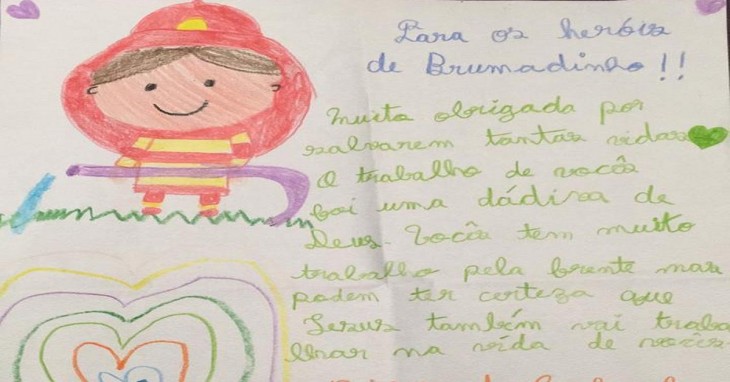 Para os heróis
de Brumadinho!!
Muito obrigada por
salvarem tantas vidas
O trabalho de vocês
foi uma dádiva de
Deus. Vocês tem muito
trabalho pela frente mas
podem ter certeza que
Jesus também vai traba
lhar na vida de vocês